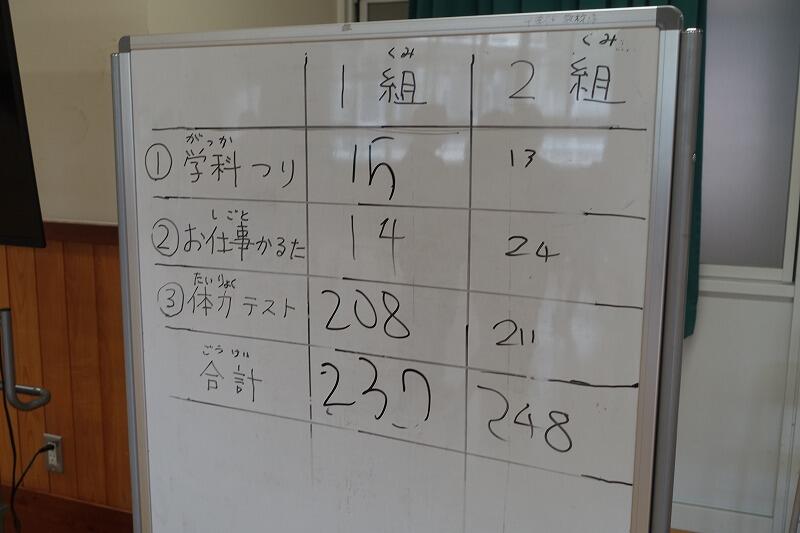 くみ くみ
1組 2組
がっか
①学科つり 15 13
しごと
②お仕事かるた 14 24
たいりょく
③体力テスト 208 211
ごうけい
合計 237 248